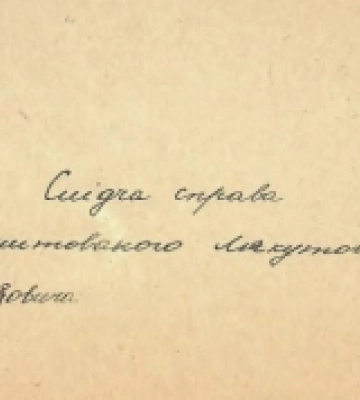 Слідча справа
штованого Лякутов
овича